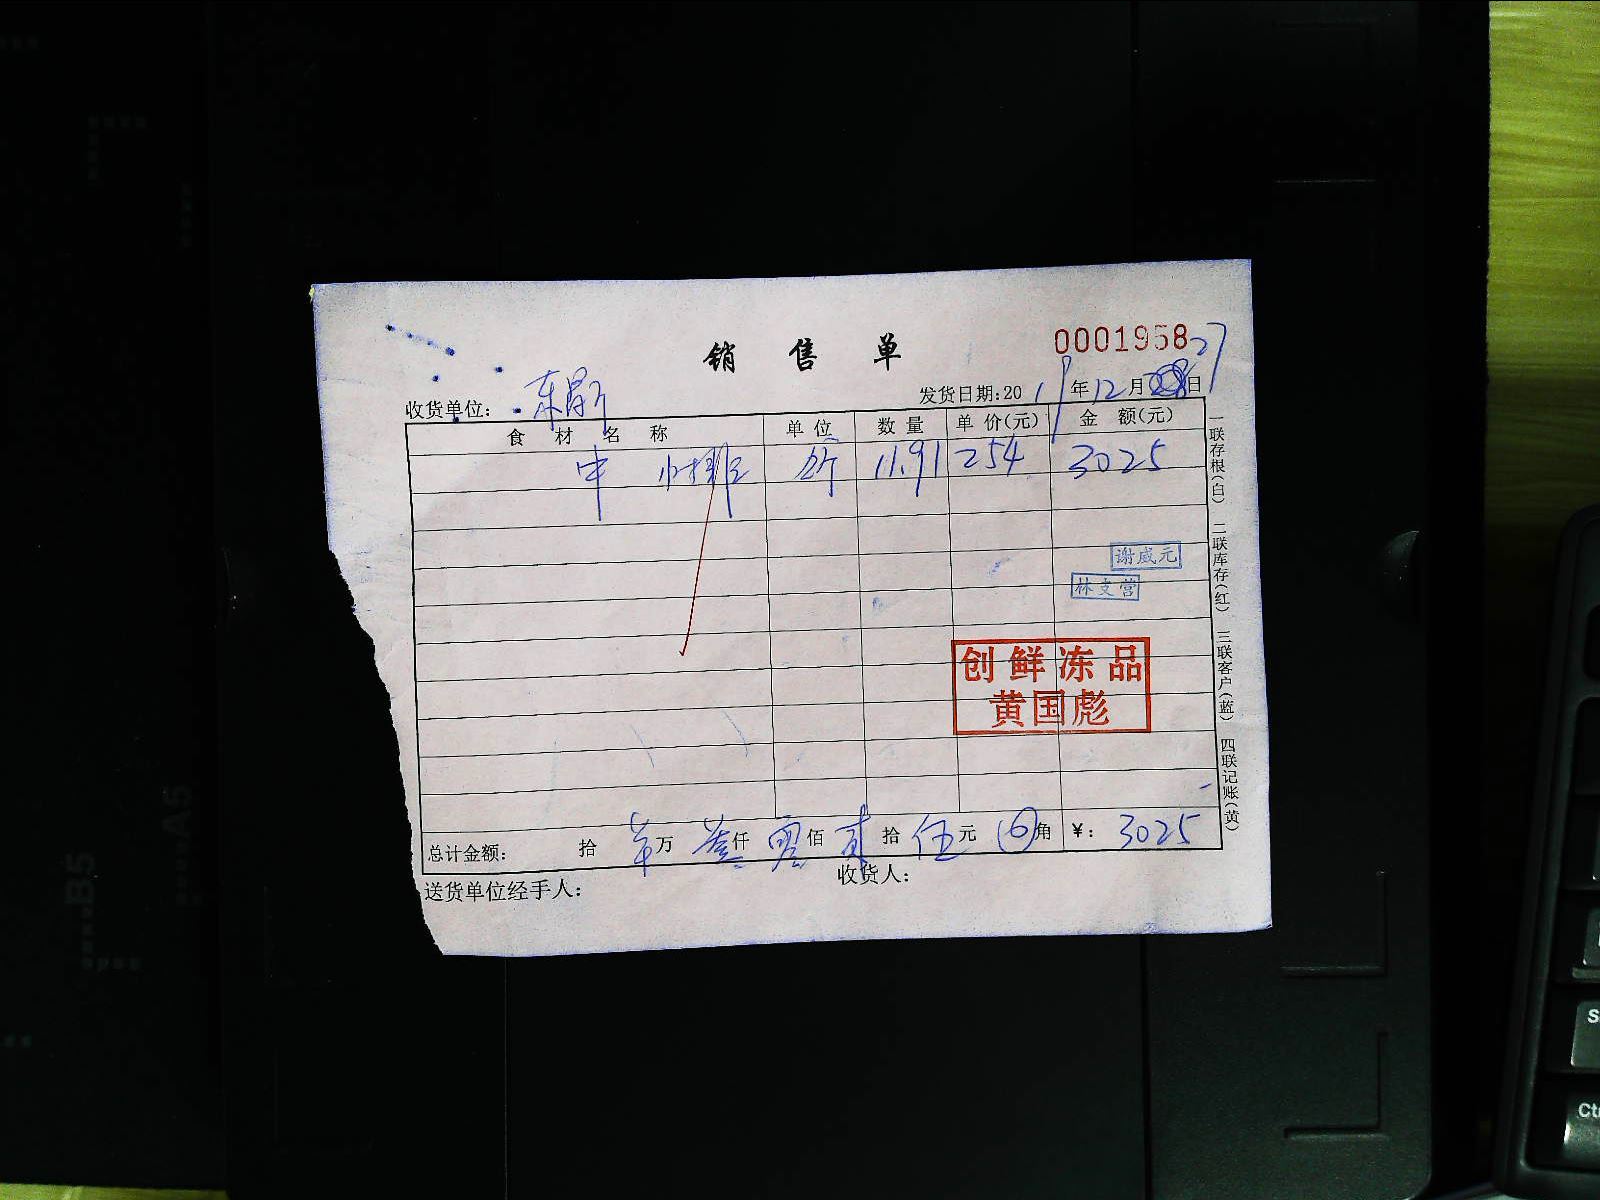 销 售 单
0001958
收货单位: 东
发货日期:20 19 年 12 月 27 日
食 材 名 称 单 位 数 量 单 价(元) 金 额(元)
中 小排 斤 11.91 254 3025
谢威元
林支营
创鲜冻品
黄国彪
总计金额: 拾 万 叁仟 零佰 贰拾 伍元 角 ¥: 3025
送货单位经手人: 收货人:
一联存根(白) 二联库存(红) 三联客户(蓝) 四联记账(黄)
B5
A5